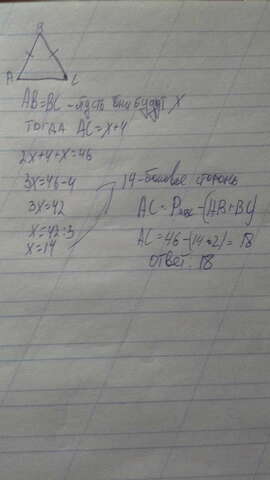 B
A C
AB=BC - пусть они будут x
тогда AC=x+4
2x+4+x=46
3x=46-4
3x=42
x=42:3
x=14
14-боковые стороны
AC=Pавс-(AB+BC)
AC=46-(14*2)=18
ответ: 18